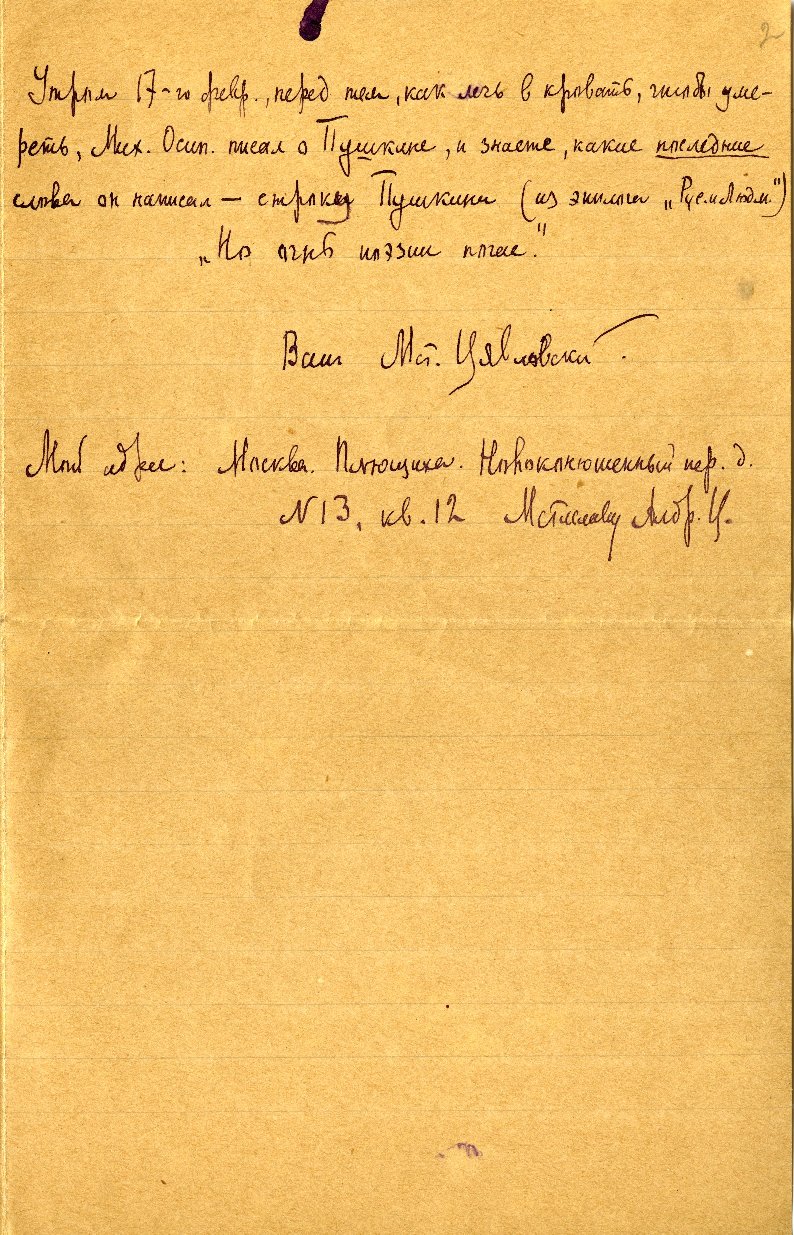 2
Утром 17-го февр., перед тем, как лечь в кровать, чтобы уме-
реть, Мих. Осип. писал о Пушкине, и знаете, какие последние
слова он написал — строку Пушкина (из эпилога „Русл. и Людм.")
„Но огнь поэзии погас."
Ваш Мст. Цявловский.
Мой адрес: Москва. Плющиха. Новоконюшенный пер. д.
N 13, кв. 12 Мстиславу Алдр. Ц.